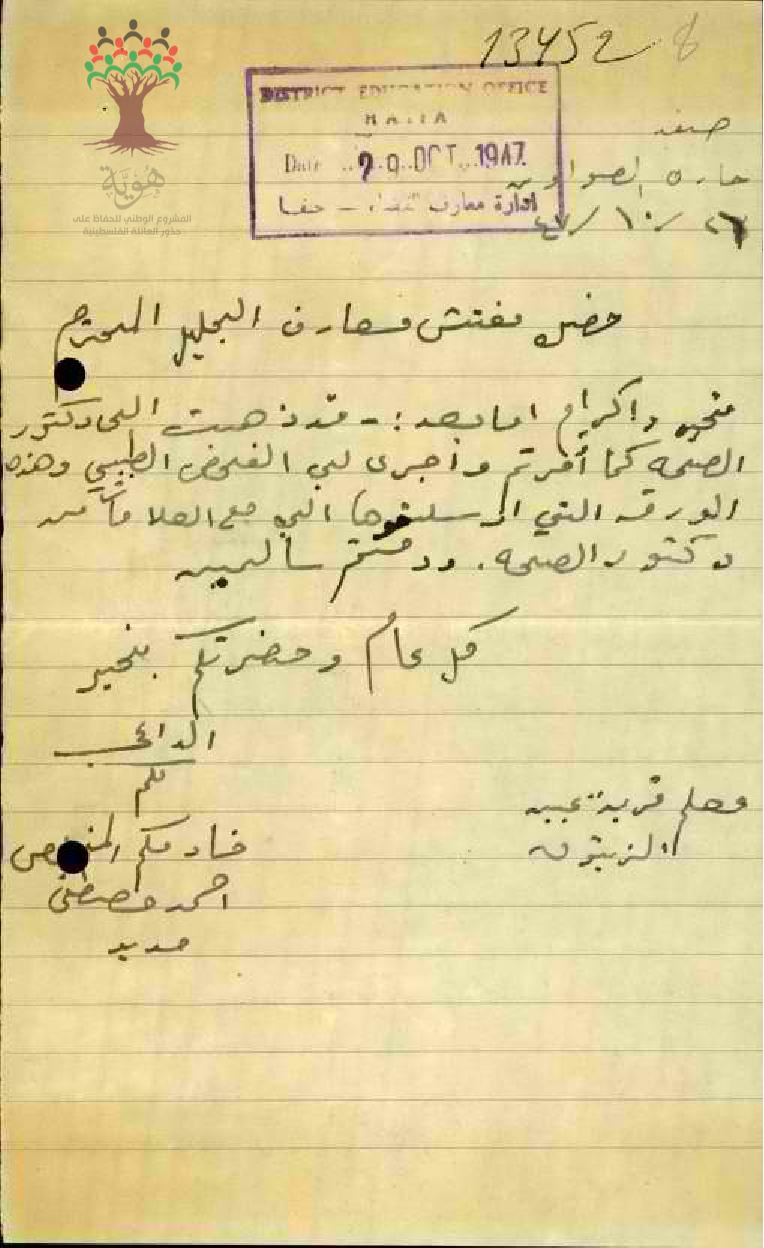 13452 8
DISTRICT EDUCATION OFFICE
HAIFA
Date 29 OCT 1947
ادارة معارف اللواء – حيفا
صفد
حارة الصواوين
٢٦/١٠/٤٧
هوية
المشروع الوطني للحفاظ على
جذور العائلة الفلسطينية
حضرة مفتش معارف الجليل المحترم
تحية واكرام اما بعد :- قد ذهبت الى دكتور
الصحه كما أمرتم وأجرى لي الفحص الطبي وهذه
الورقه التي ارسلتموها الي مع العلامات من
دكتور الصحه. ودمتم سالمين
كل عام وحضرتكم بخير
الداعي
لكم
معلم قرية عين
الزيتون
خادمكم المخلص
احمد مصطفى
حديد